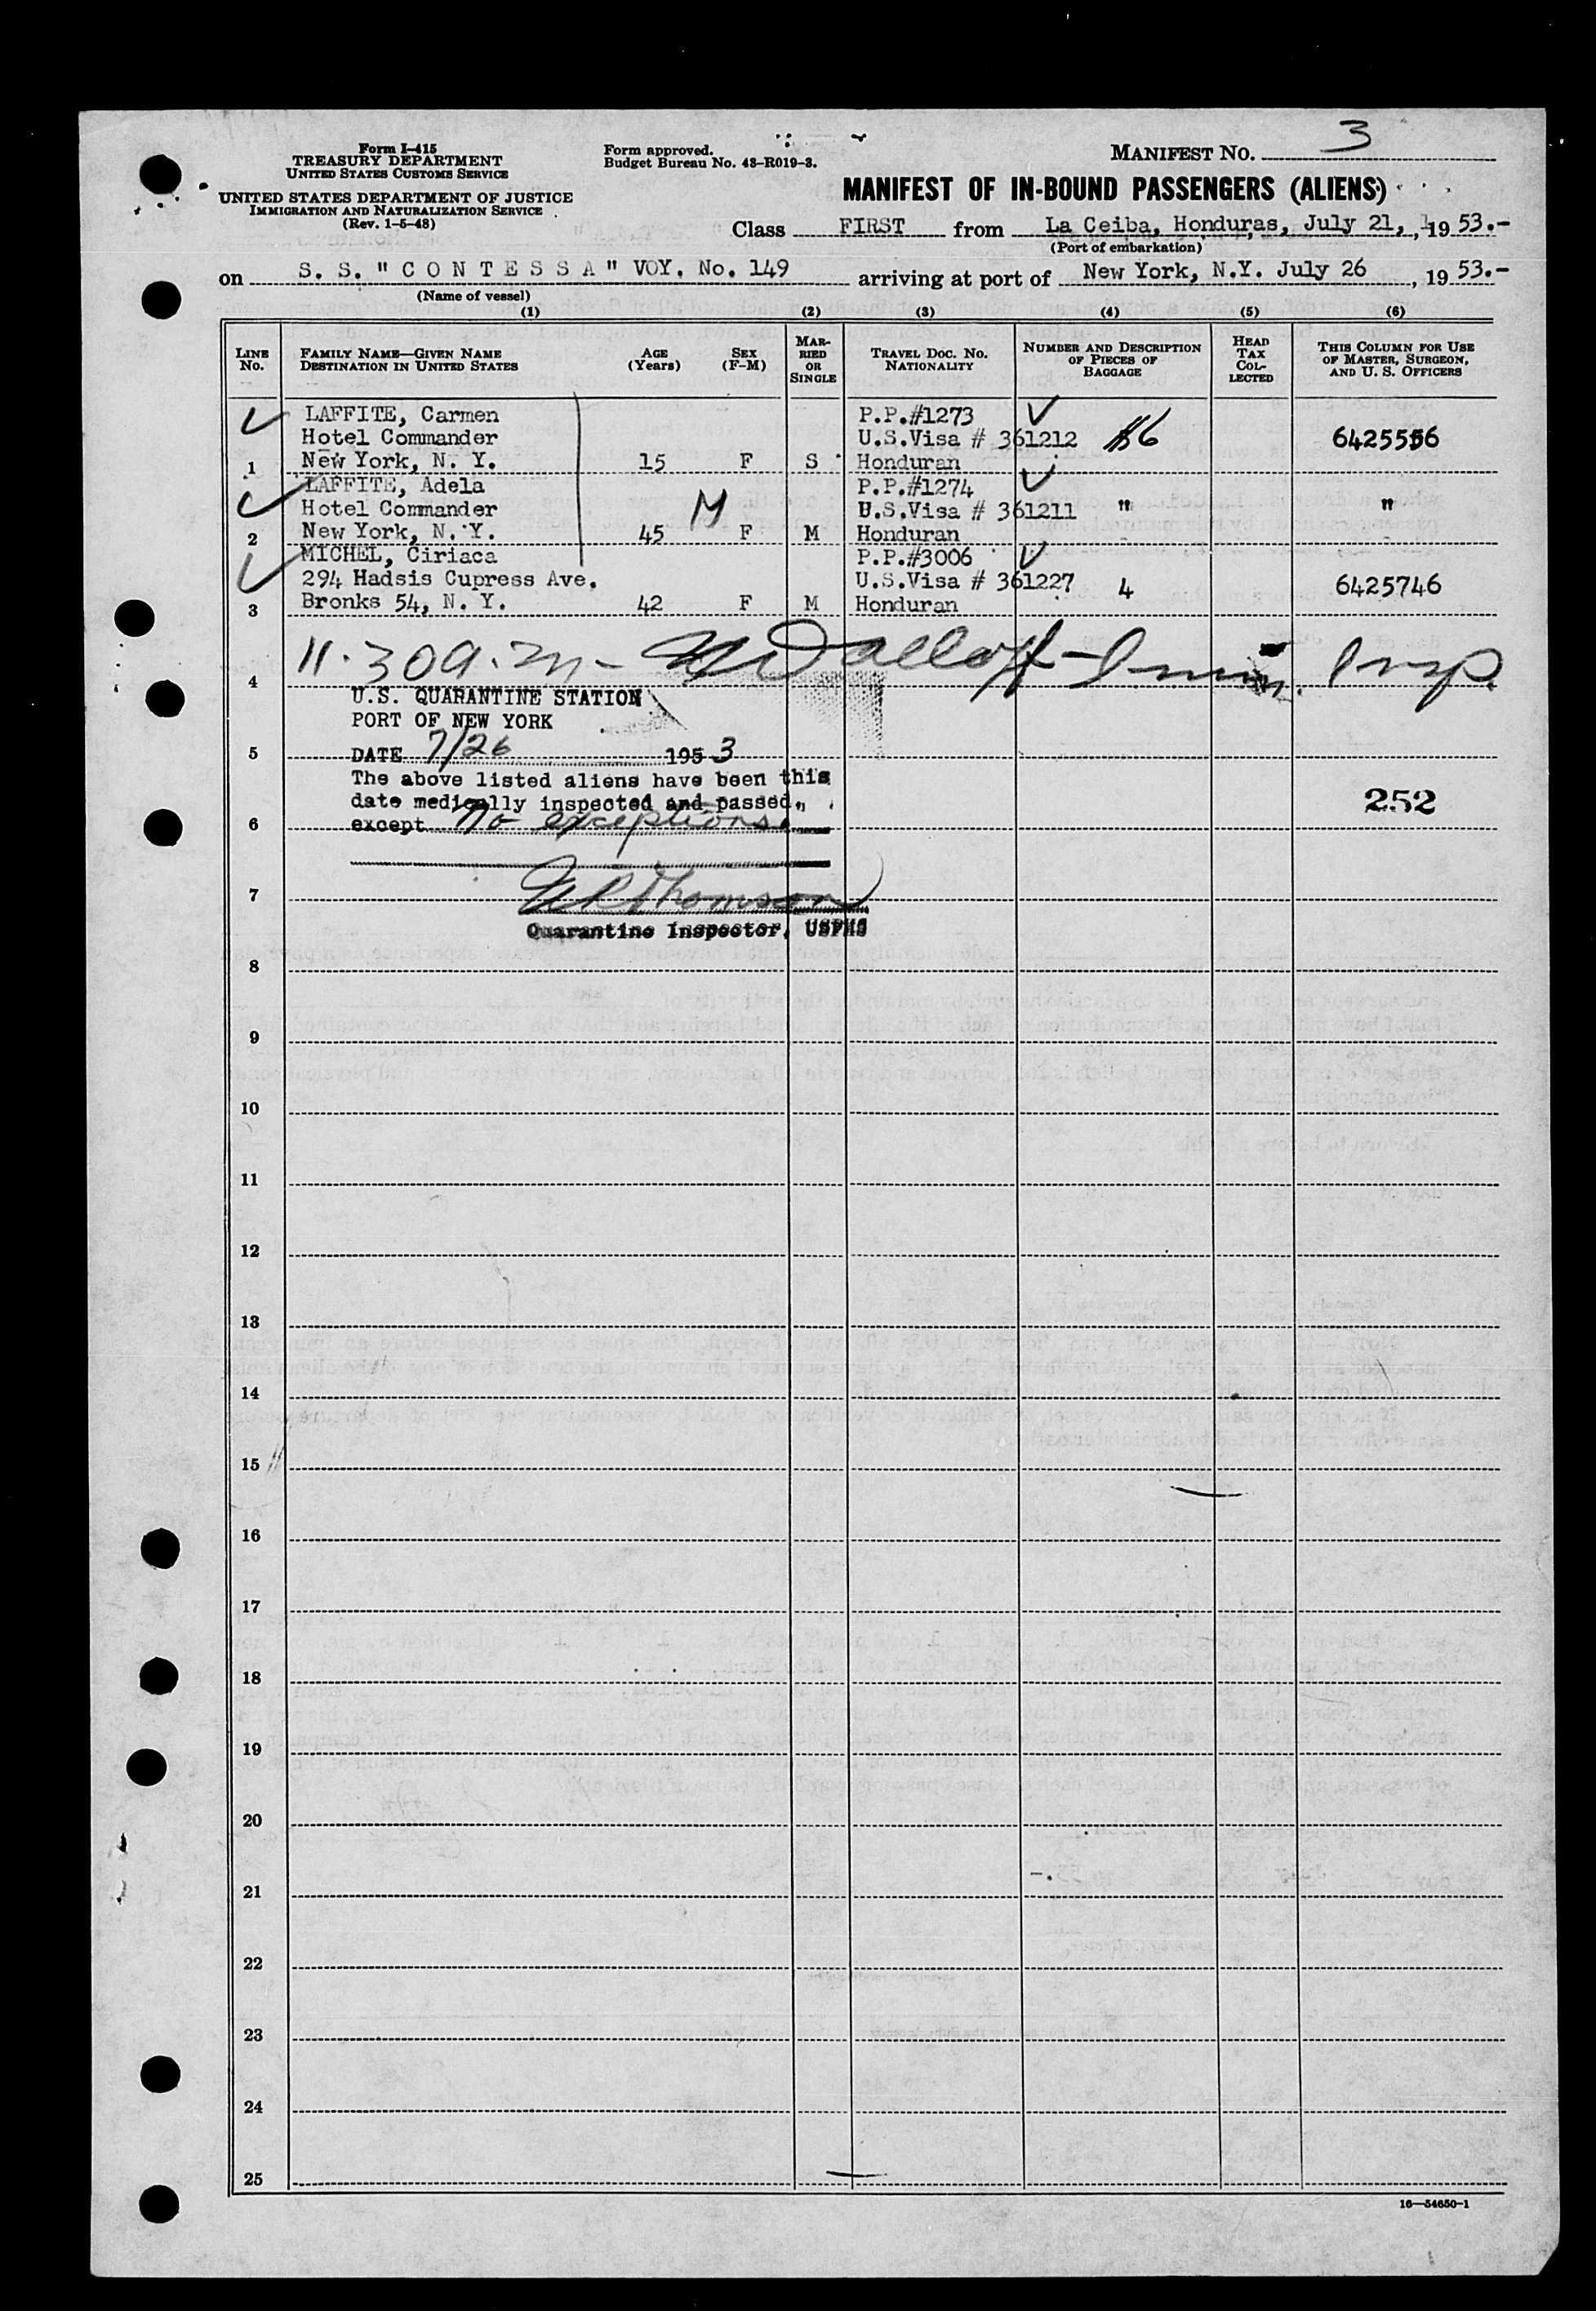 Form I-415
TREASURY DEPARTMENT
UNITED STATES CUSTOMS SERVICE
UNITED STATES DEPARTMENT OF JUSTICE
IMMIGRATION AND NATURALIZATION SERVICE
(Rev. 1-5-48)
Form approved.
Budget Bureau No. 43-R019-3.
MANIFEST NO. 3
MANIFEST OF IN-BOUND PASSENGERS (ALIENS)
Class FIRST from La Ceiba, Honduras, July 21, , 19 53.-
(Port of embarkation)
on S. S. " C O N T E S S A " VOY. No. 149 arriving at port of New York, N.Y. July 26 , 19 53.-
(Name of vessel)
(1) (2) (3) (4) (5) (6)
LINE No. FAMILY NAME—GIVEN NAME DESTINATION IN UNITED STATES AGE (Years) SEX (F-M) MARRIED OR SINGLE TRAVEL DOC. NO. NATIONALITY NUMBER AND DESCRIPTION OF PIECES OF BAGGAGE HEAD TAX COLLECTED THIS COLUMN FOR USE OF MASTER, SURGEON, AND U. S. OFFICERS
LAFFITE, Carmen P.P.#1273
Hotel Commander U.S.Visa # 361212 6 6425556
1 New York, N. Y. 15 F S Honduran
LAFFITE, Adela P.P.#1274
Hotel Commander M U.S.Visa # 361211 " "
2 New York, N. Y. 45 F M Honduran
MICHEL, Ciriaca P.P.#3006
294 Hadsis Cupress Ave. U.S.Visa # 361227 4 6425746
3 Bronks 54, N. Y. 42 F M Honduran
11.30 a.m - Imm. Insp.
4
U.S. QUARANTINE STATION
PORT OF NEW YORK
5 DATE 7/26 1953
The above listed aliens have been this
date medically inspected and passed, 252
6 except No exceptions.
7 Thomson
Quarantine Inspector, USPHS
8
9
10
11
12
13
14
15
16
17
18
19
20
21
22
23
24
25
16—54650-1